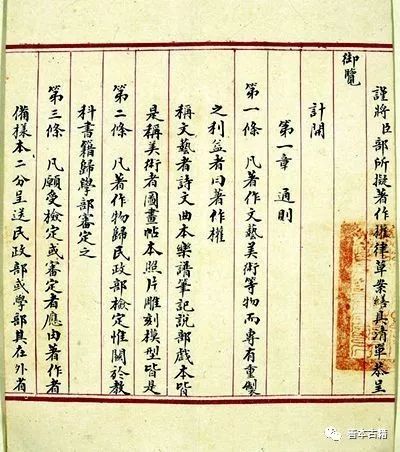 謹將臣部所擬著作權律草案繕具清單恭呈
御覽
計開
第一章 通則
第一條 凡著作文藝美術等物而專有重製
之利益者曰著作權
稱文藝者詩文曲本樂譜筆記說部戲本皆
是稱美術者圖畫帖本照片雕刻模型皆是
第二條 凡著作物歸民政部檢定惟關於教
科書籍歸學部審定之
第三條 凡願受檢定或審定者應由著作者
備樣本二分呈送民政部或學部其在外省
善本古籍